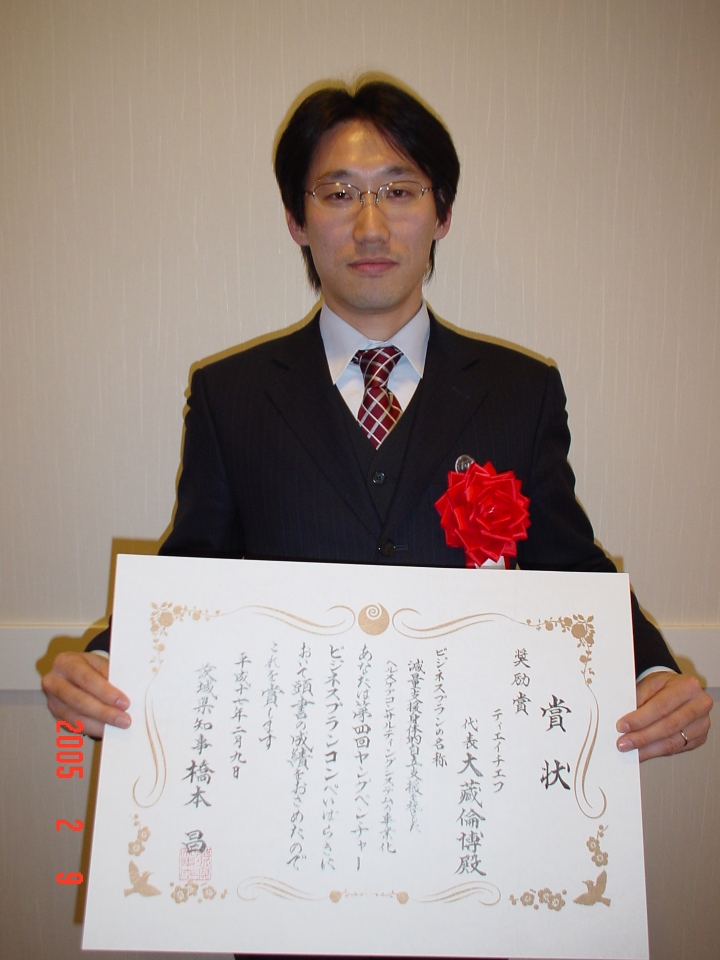 賞状
奨励賞
ティエイチエフ
代表 大藏倫博殿
ビジネスプランの名称
減量支援身体的自立支援を核とした
ヘルスケアコンサルティングシステムの事業化
あなたは第四回ヤングベンチャー
ビジネスプランコンペいばらきに
おいて頭書の成績をおさめたので
これを賞します
平成十七年二月九日
茨城県知事 橋本 昌
2005 2 9